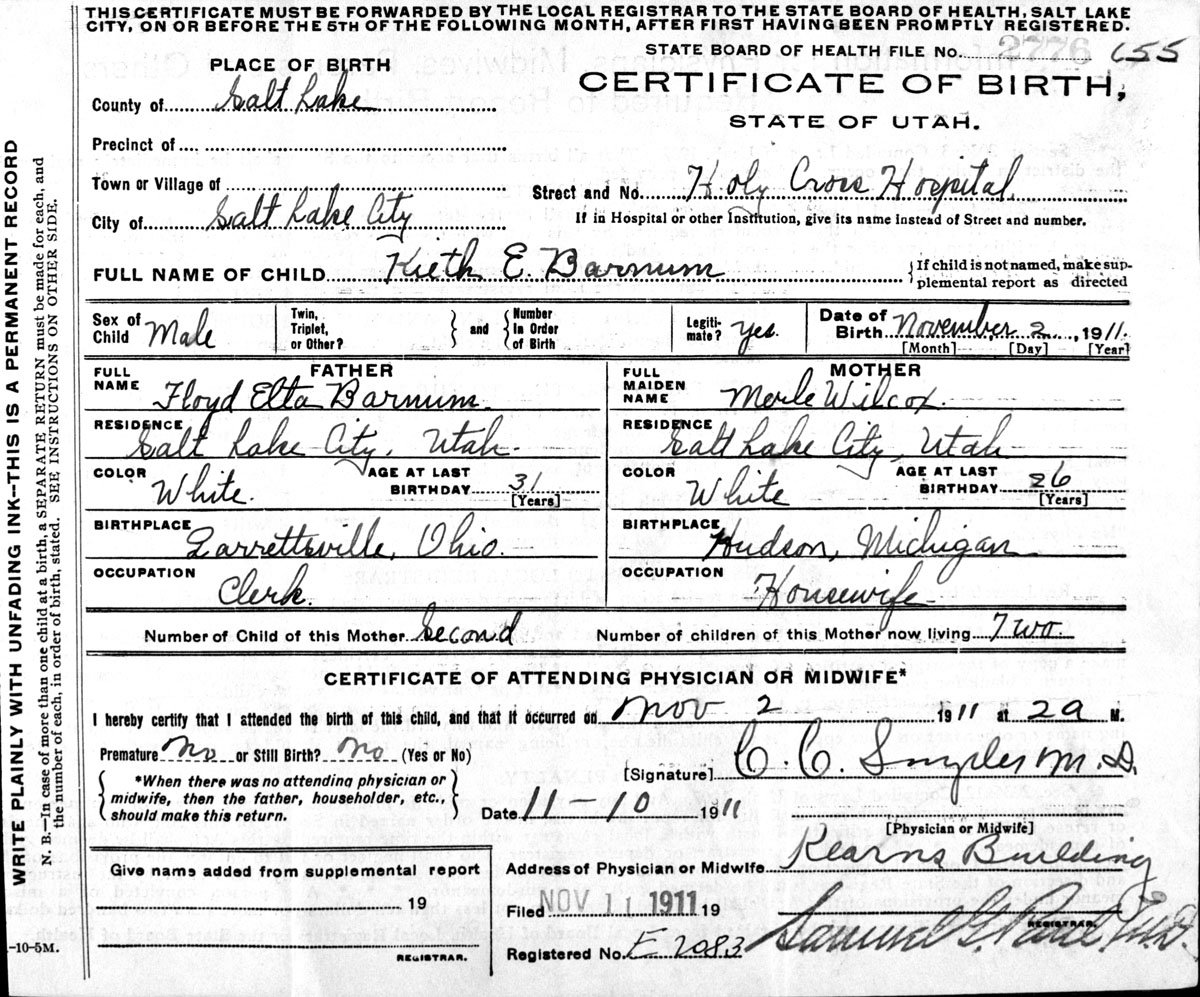 THIS CERTIFICATE MUST BE FORWARDED BY THE LOCAL REGISTRAR TO THE STATE BOARD OF HEALTH, SALT LAKE
CITY, ON OR BEFORE THE 5TH OF THE FOLLOWING MONTH, AFTER FIRST HAVING BEEN PROMPTLY REGISTERED.
STATE BOARD OF HEALTH FILE No. 2776 655
PLACE OF BIRTH
CERTIFICATE OF BIRTH,
STATE OF UTAH.
County of Salt Lake
Precinct of
Town or Village of
Street and No. Holy Cross Hospital.
City of Salt Lake City
If in Hospital or other Institution, give its name instead of Street and number.
FULL NAME OF CHILD Kieth E. Barnum
{If child is not named, make sup-
plemental report as directed
Sex of Child Male
Twin, Triplet, or Other? } and { Number in Order of Birth
Legiti-mate? Yes.
Date of Birth November 2, 1911.
[Month] [Day] [Year]
FATHER
MOTHER
FULL NAME Floyd Elta Barnum.
FULL MAIDEN NAME Merle Wilcox.
RESIDENCE Salt Lake City, Utah.
RESIDENCE Salt Lake City, Utah
COLOR White. AGE AT LAST BIRTHDAY 31 [Years]
COLOR White AGE AT LAST BIRTHDAY 26 [Years]
BIRTHPLACE Garrettsville, Ohio.
BIRTHPLACE Hudson, Michigan
OCCUPATION Clerk.
OCCUPATION Housewife
Number of Child of this Mother Second
Number of children of this Mother now living Two.
CERTIFICATE OF ATTENDING PHYSICIAN OR MIDWIFE*
I hereby certify that I attended the birth of this child, and that it occurred on Nov. 2 1911 at 2a M.
Premature No or Still Birth? No (Yes or No)
*When there was no attending physician or
midwife, then the father, householder, etc.,
should make this return.
[Signature] C. C. Snyder M.D.
Date 11-10 1911
[Physician or Midwife]
Give name added from supplemental report
19
REGISTRAR.
Address of Physician or Midwife Kearns Building
Filed NOV 11 1911 19
Samuel G. Paul, M.D.
REGISTRAR.
Registered No. E 2083
-10-5M.
WRITE PLAINLY WITH UNFADING INK--THIS IS A PERMANENT RECORD
N. B.—In case of more than one child at a birth, a SEPARATE RETURN must be made for each, and
the number of each, in order of birth, stated. SEE INSTRUCTIONS ON OTHER SIDE.